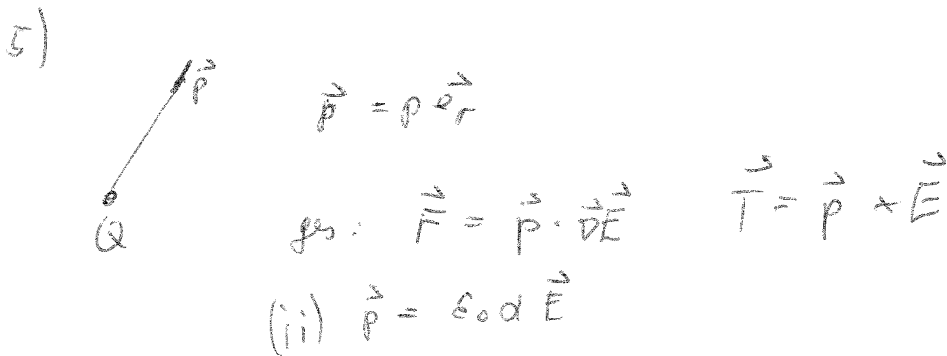 5)
p⃗
p⃗ = p e⃗ᵣ
Q
ges: F⃗ = p⃗ · ∇⃗E⃗ T⃗ = p⃗ × E⃗
(ii) p⃗ = ε₀ α E⃗